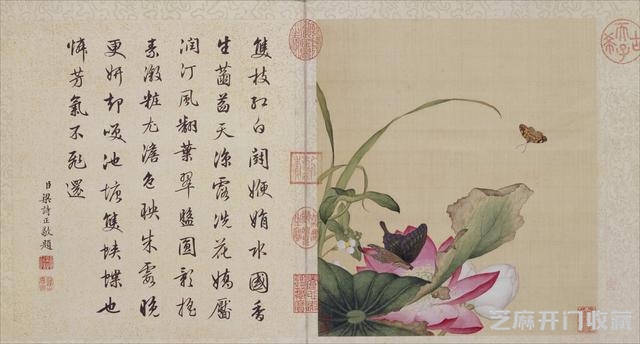 古希天子
雙枝紅白鬪便娟水國香
生菡萏天涼露洗花嬌靨
潤汀風翻葉翠盤圓影搖
素瀲粧尤澹色映朱霞晚
更妍却笑池塘雙蛺蝶也
憐芳氣不飛還
臣梁詩正敬題
芝麻开门收藏